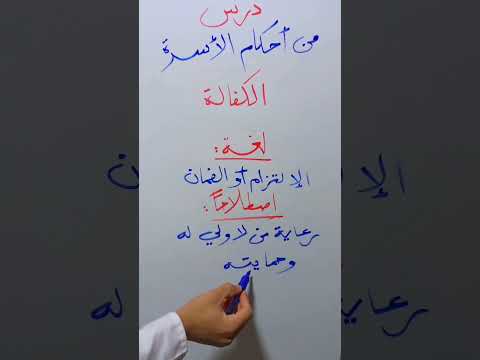 درس
من أحكام الأسرة
الكفالة
لغة :
الإلتزام أو الضمان
اصطلاحاً :
رعاية من لا ولي له
وحمايته